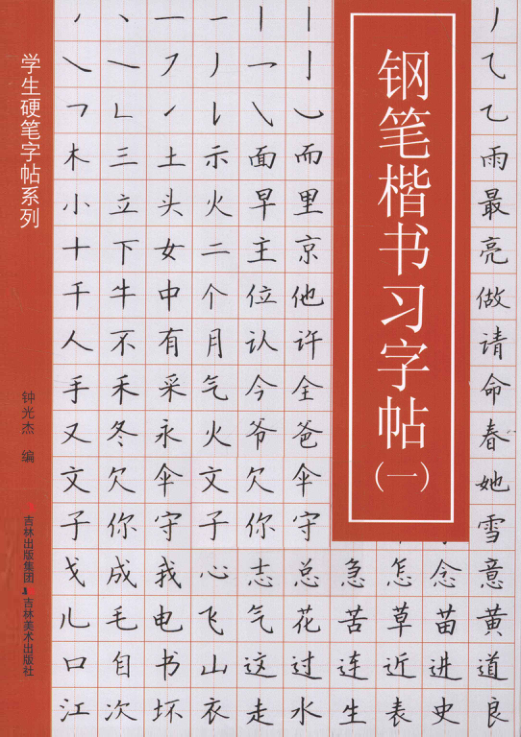 钢笔楷书习字帖(一)
学生硬笔字帖系列
钟光杰 编
吉林出版集团
吉林美术出版社
木 三 土 示 面 而 雨
小 立 头 火 早 里 最
十 下 女 二 主 京 亮
千 牛 中 个 位 他 做
人 不 有 月 认 许 请
手 禾 采 气 今 全 命
又 冬 永 火 爷 爸 春
文 欠 伞 文 欠 伞 她
子 你 守 子 你 守 雪
戈 成 我 心 志 总 急 怎 念 意
儿 毛 电 飞 气 花 苦 草 苗 黄
口 自 书 山 这 过 连 近 进 道
江 次 坏 衣 走 水 生 表 史 良